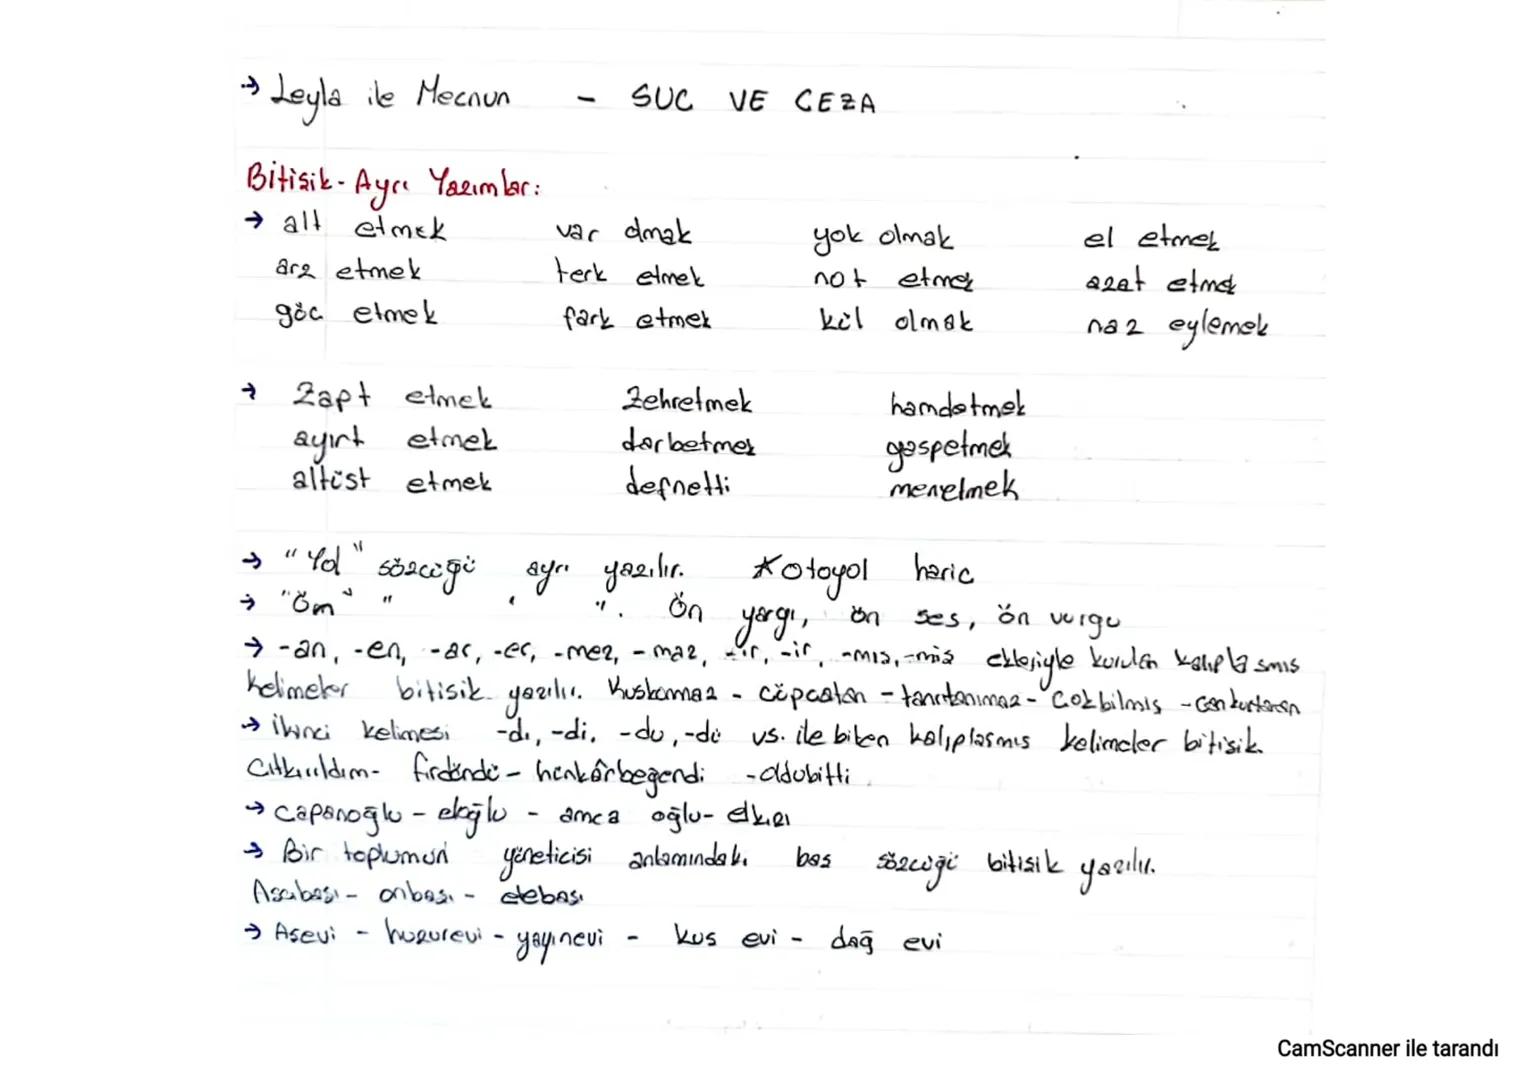 → Leyla ile Mecnun - SUC VE CEZA
Bitişik-Ayrı Yazımlar:
→ alt etmek var olmak yok olmak el etmek
arz etmek terk etmek not etmek azat etmek
göc etmek fark etmek kül olmak naz eylemek
→ Zapt etmek Zehretmek hamdetmek
ayırt etmek darbetmek gaspetmek
altüst etmek defnetti menetmek
→ "Yol" sözcüğü ayrı yazılır. *otoyol haric
→ "Ön" " " ". Ön yargı, ön ses, ön vurgu
→ -an, -en, -ar, -er, -mez, -maz, -ır, -ir, -mış, -miş ekleriyle kurulan kalıplaşmış
kelimeler bitisik yazılır. Kuskonmaz - cöpcatan - tanrıtanımaz - Cokbilmiş - Cankurtaran
→ İkinci kelimesi -dı, -di, -du, -dü vs. ile biten kalıplasmıs kelimeler bitisik
Cıtkırıldım - fırdöndü - hünkârbeğendi - oldubitti
→ Capanoğlu - eloğlu - amca oğlu - elkızı
→ Bir toplumun yöneticisi anlamındaki bas sözcüğü bitisik yazılır.
Ascıbası - onbası - elebası
→ Asevi - huzurevi - yayınevi - kus evi - dağ evi
CamScanner ile tarandı